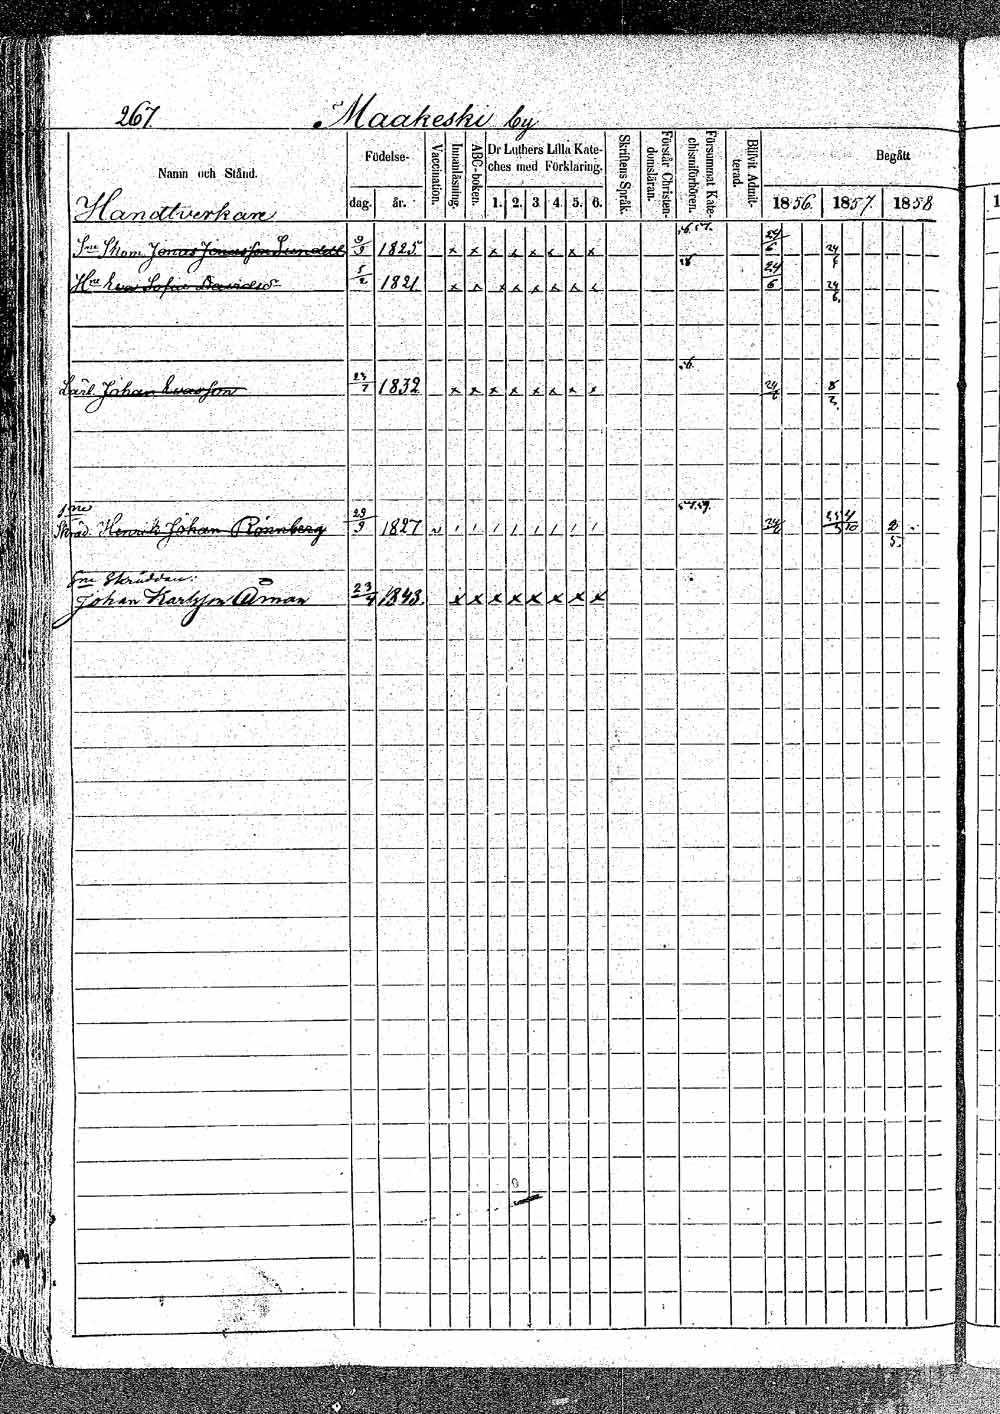 267. Maakeski by
Namn och Stånd. Födelse- dag. år. Vaccination. Innanläsning. ABC-boken. Dr Luthers Lilla Kateches med Förklaring. 1. 2. 3 4. 5. 6. Skriftens Språk. Förstår Christendomsläran. Försummat Katechismiförhören. Blifvit Admitterad. Begått 1856. 1857. 1858
Handtverkare
Sne Skom Jonas Jonasson Lundell 9/9 1825. x x x x x x x x 56 57. 24/6 24/6
Hnr Eva Sofia Davidsdr 5/2 1821 x x x x x x x x 24/6 24/6.
Lärl. Johan Evasson 23/7 1832 x x x x x x x x 56. 24/6 8/3.
Sne
Skräd. Henrik Johan Rönnberg 29/9 1827 v / / / / / / / / 57.59. 24/6 2/5.
Sne Skräddare:
Johan Karlsson Öman 23/4 1843. x x x x x x x x